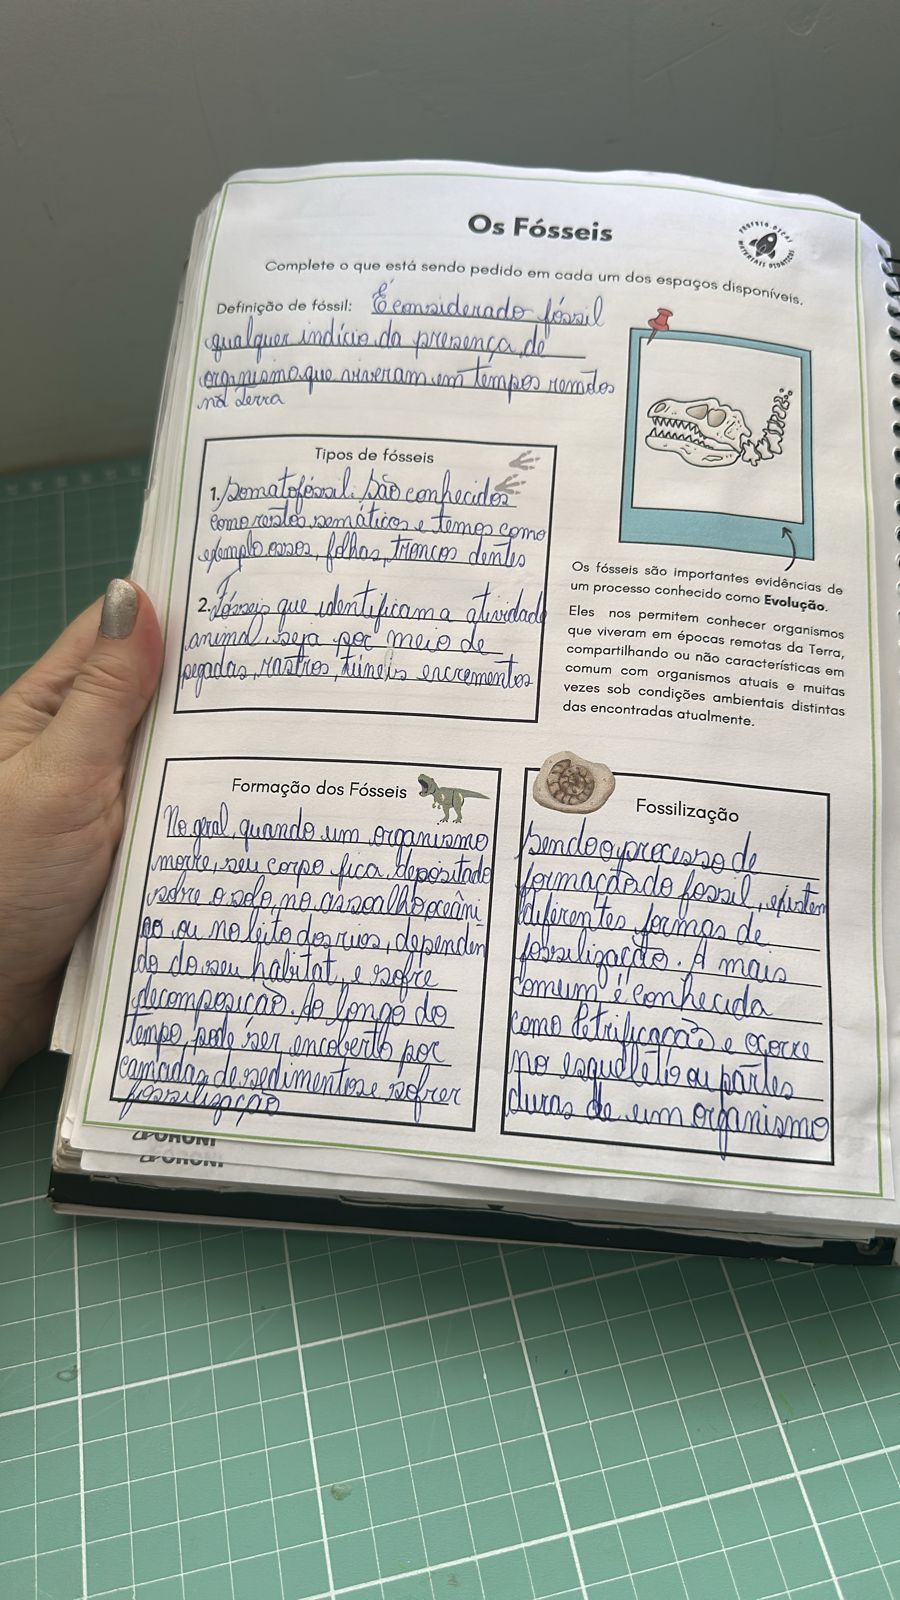 Os Fósseis
PROJETO DECAS
MATERIAIS DIDÁTICOS
Complete o que está sendo pedido em cada um dos espaços disponíveis.
Definição de fóssil: É considerado fóssil
qualquer indício da presença de
organismo que viveram em tempos remotos
na terra
Tipos de fósseis
1. Somatofóssil. São conhecidos
como restos somáticos e temos como
exemplo ossos, folhas, troncos dentes
2. Fósseis que identificam a atividade
animal, seja por meio de
pegadas, rastros, túneis encrementos
Os fósseis são importantes evidências de
um processo conhecido como Evolução.
Eles nos permitem conhecer organismos
que viveram em épocas remotas da Terra,
compartilhando ou não características em
comum com organismos atuais e muitas
vezes sob condições ambientais distintas
das encontradas atualmente.
Formação dos Fósseis
No geral, quando um organismo
morre, seu corpo fica depositado
sobre o solo, no assoalho oceâni
co ou no leito dos rios, dependen
do do seu habitat, e sofre
decomposição. Ao longo do
tempo, pode ser encoberto por
camadas de sedimentos e sofrer
fossilização
Fossilização
Sendo o processo de
formação do fossil, existem
diferentes formas de
fossilização. A mais
comum é conhecida
como Petrificação e ocorre
no esqueleto ou partes
duras de um organismo